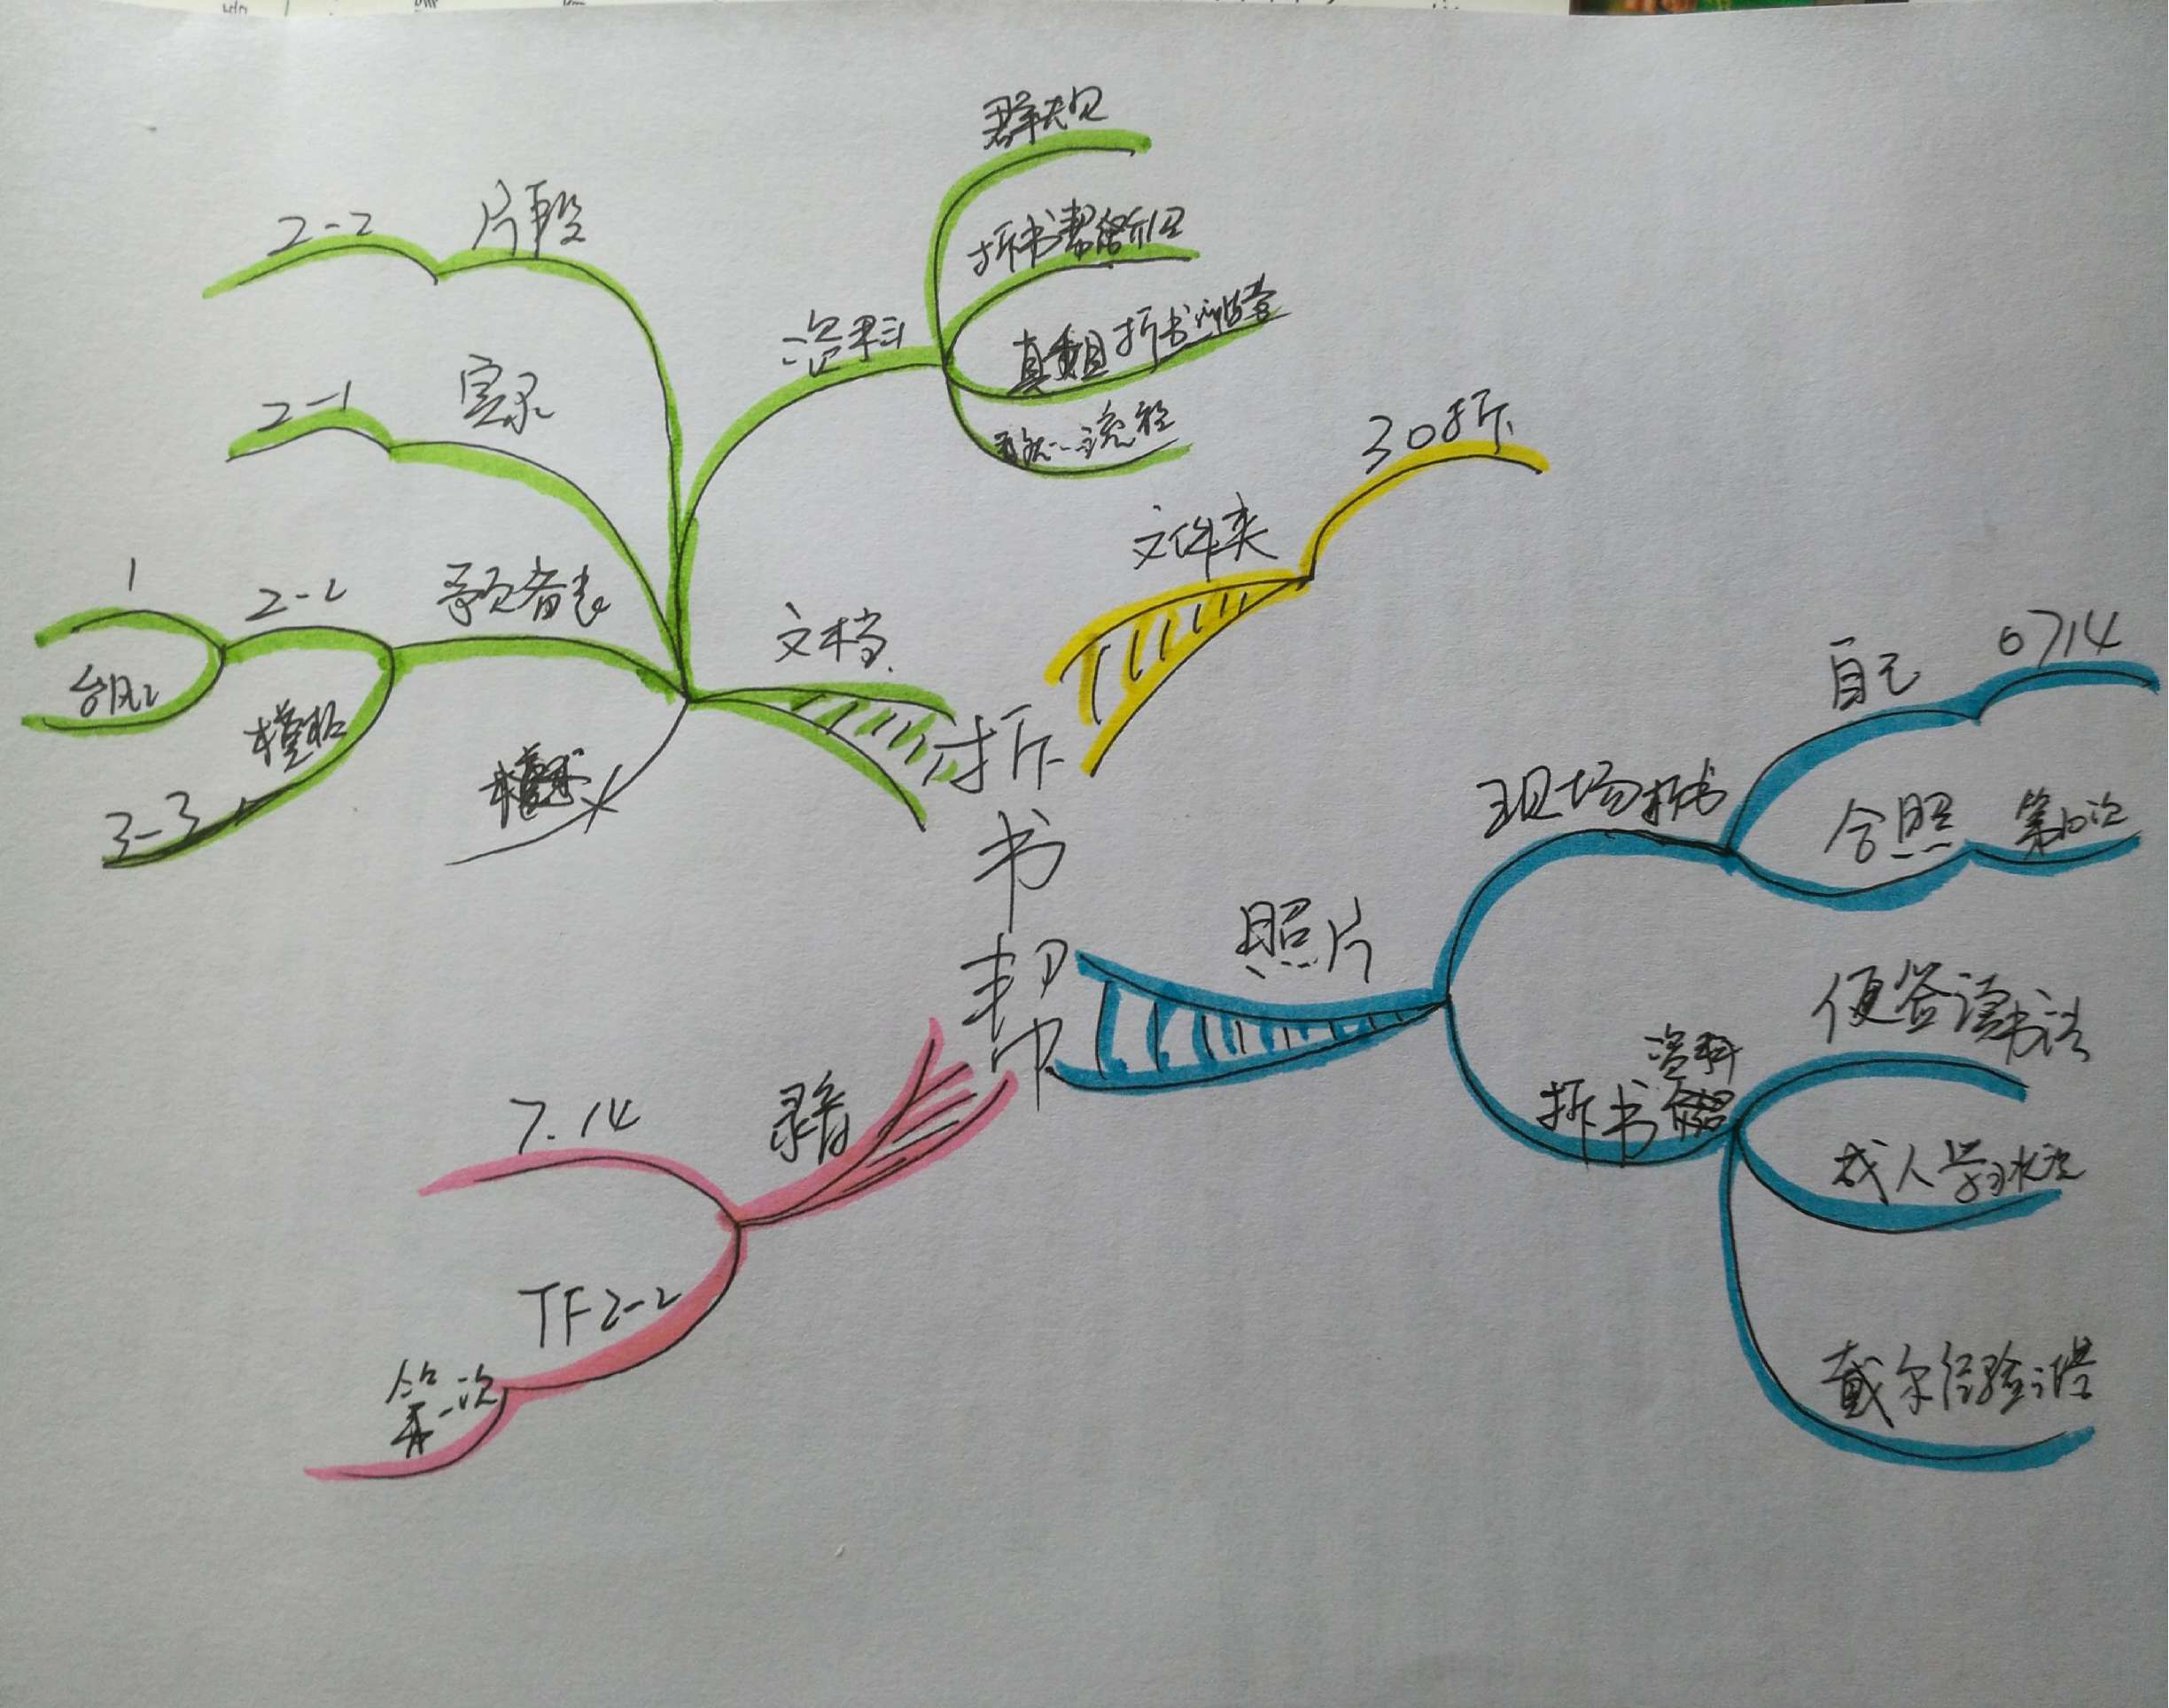 群规
片段
2-2
拆书帮介绍
真 拆书训练营
资料
实录
2-1
流程
30拆
文件夹
1
2-2
预备表
文档
模板
3-3
自己
0714
现场拆书
合照
第10次
拆
书
帮
照片
便签读书法
资料
拆书
录音
7.14
成人学习
TF2-2
戴尔经验塔
第一次